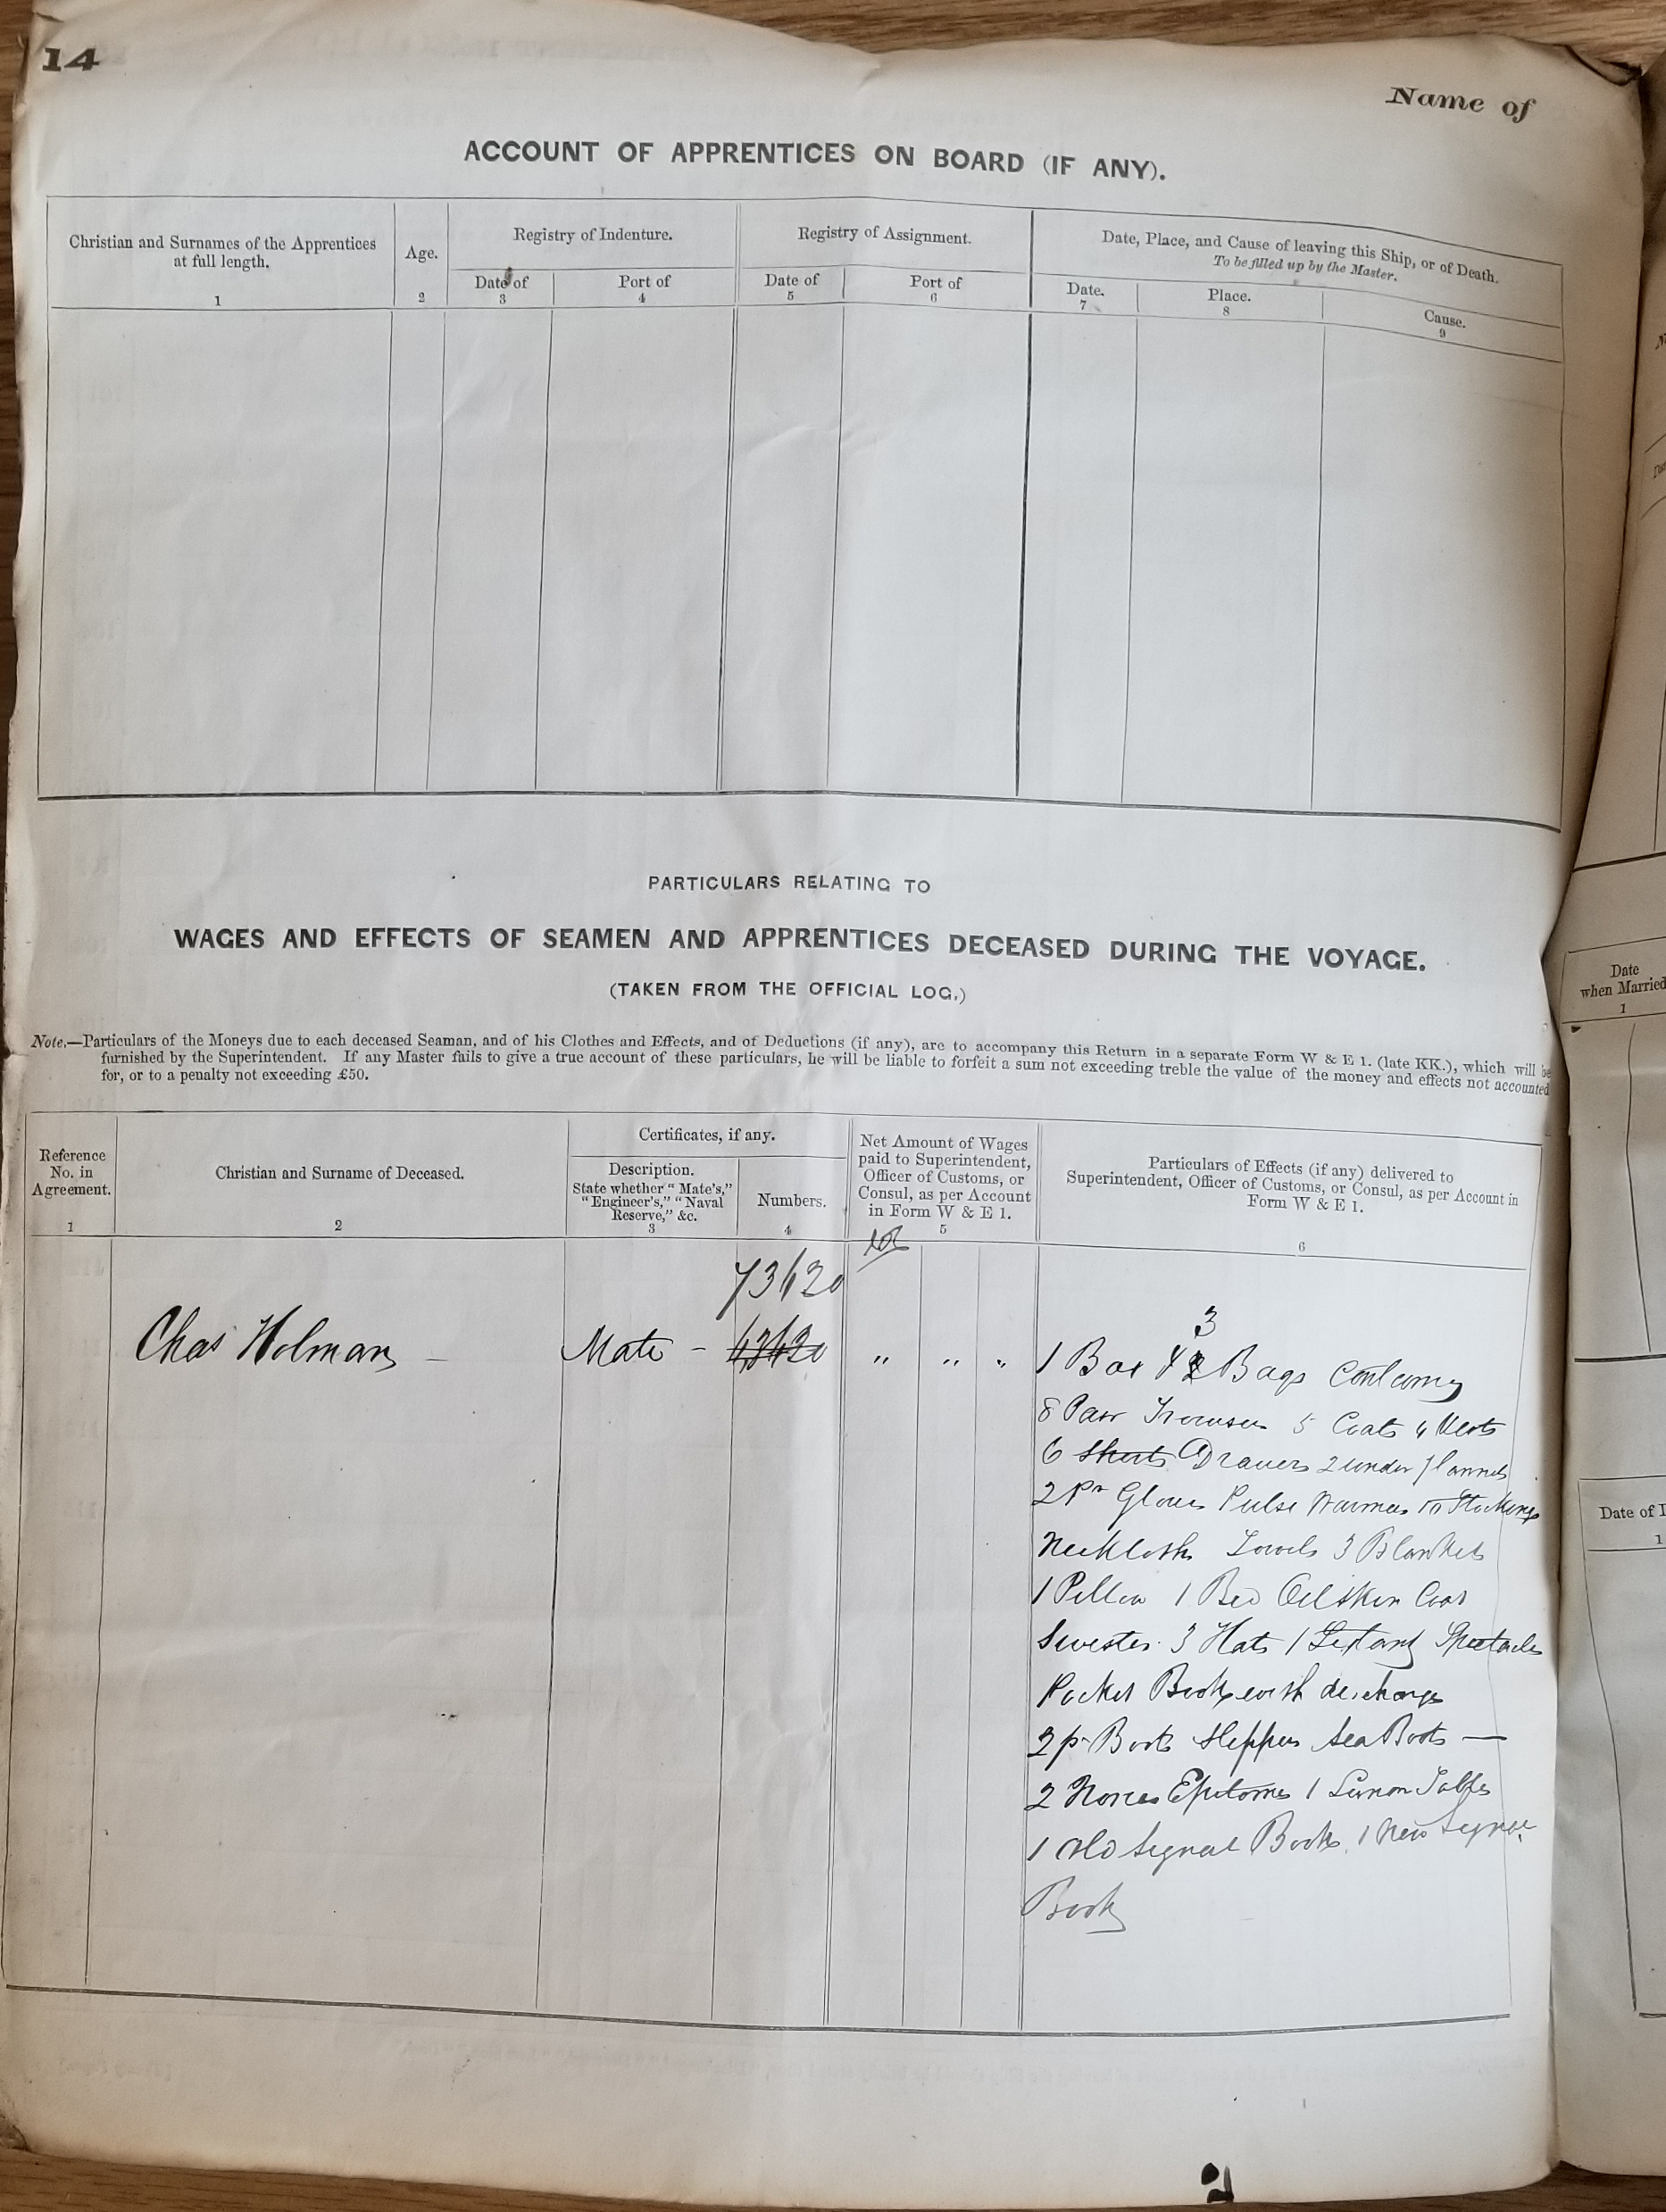 14
Name of
ACCOUNT OF APPRENTICES ON BOARD (IF ANY).
Christian and Surnames of the Apprentices
at full length.
1
Age.
2
Registry of Indenture.
Date of
3
Port of
4
Registry of Assignment.
Date of
5
Port of
6
Date, Place, and Cause of leaving this Ship, or of Death.
To be filled up by the Master.
Date.
7
Place.
8
Cause.
9
PARTICULARS RELATING TO
WAGES AND EFFECTS OF SEAMEN AND APPRENTICES DECEASED DURING THE VOYAGE.
(TAKEN FROM THE OFFICIAL LOG.)
Note.—Particulars of the Moneys due to each deceased Seaman, and of his Clothes and Effects, and of Deductions (if any), are to accompany this Return in a separate Form W & E 1. (late KK.), which will be
furnished by the Superintendent. If any Master fails to give a true account of these particulars, he will be liable to forfeit a sum not exceeding treble the value of the money and effects not accounted
for, or to a penalty not exceeding £50.
Reference
No. in
Agreement.
1
Christian and Surname of Deceased.
2
Certificates, if any.
Description.
State whether "Mate's,"
"Engineer's," "Naval
Reserve," &c.
3
Numbers.
4
Net Amount of Wages
paid to Superintendent,
Officer of Customs, or
Consul, as per Account
in Form W & E 1.
5
Particulars of Effects (if any) delivered to
Superintendent, Officer of Customs, or Consul, as per Account in
Form W & E 1.
6
73620
Chas Holman
Mate - 63620 " " "
3
1 Box & 2 Bags Containing
8 Pair Trousers 5 Coats 4 Vests
6 Shirts Drawers 2 under flannels
2 Pr Gloves Pulse Warmers Stockings
Neckcloth Towels 3 Blankets
1 Pillow 1 Bed Oilskin Coat
3 Hats 1 Sextant Spectacles
Pocket Book with discharges
2 pr Boots Slippers Sea Boots —
2 Nories Epitomes 1 Tables
1 Old Signal Book 1 New Signal
Book
Date
when Married
1
Date of
1